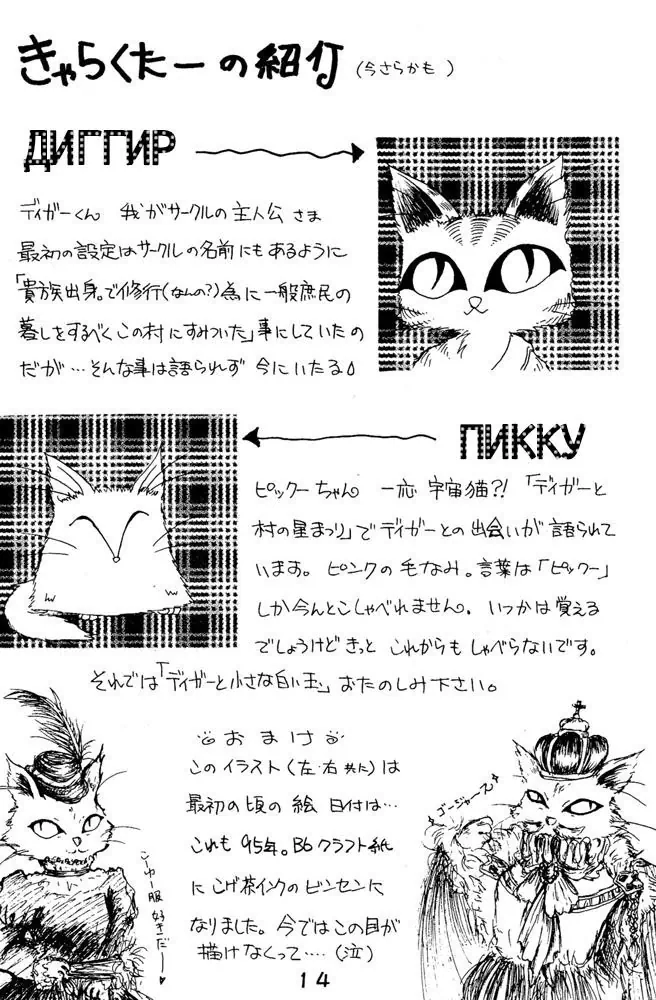 きゃらくたーの紹介 (今さらかも)
ДИГГИР
ディガーくん 我がサークルの主人公さま
最初の設定はサークルの名前にもあるように
「貴族出身。で修行(なんの?)為に一般庶民の
暮しをするべくこの村にすみついた」事にしていたの
だが…そんな事は語られず 今にいたる。
ПИККУ
ピックーちゃん 一応 宇宙猫?!「ディガーと
村の星まつり」でディガーとの出会いが語られて
います。ピンクの毛なみ。言葉は「ピックー」
しか今んとこしゃべれません。いつかは覚える
でしょうけどきっと これからもしゃべらないです。
それでは「ディガーと小さな白い玉」おたのしみ下さい。
おまけ
このイラスト(左・右 共に)は
最初の頃の絵 日付は…
これも95年。B6クラフト紙
にこげ茶インクのビンセンに
なりました。今ではこの目が
描けなくって‥‥(泣)
こーゆー服好きだー
ゴージャース
14